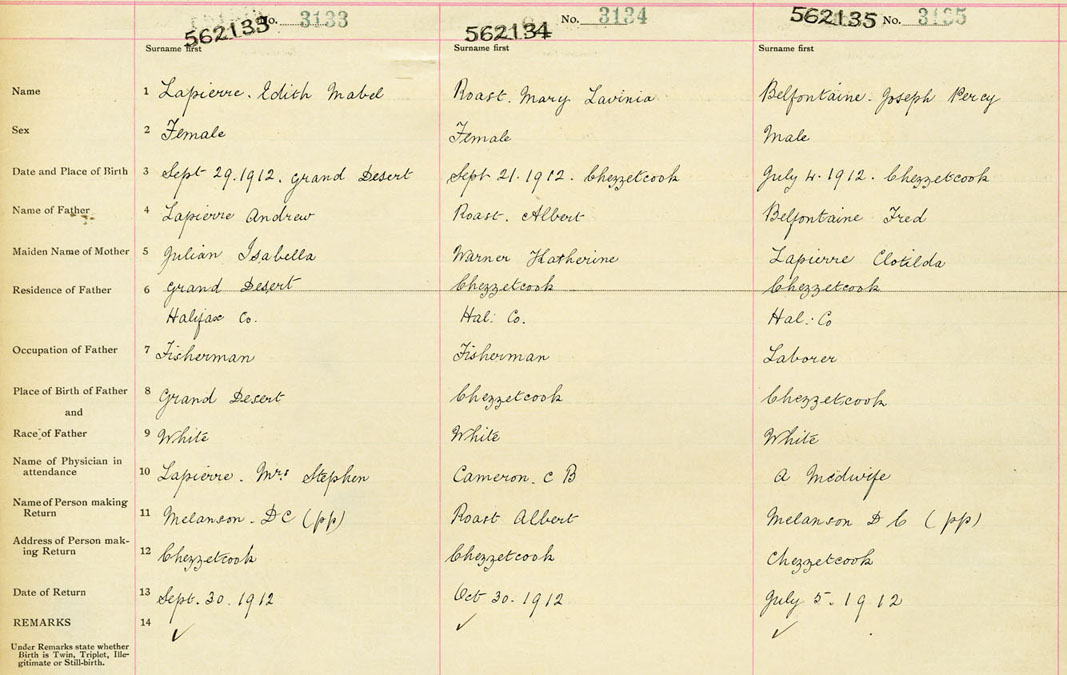 No. 3133 No. 3134 No. 3135
562133 562134 562135
Surname first Surname first Surname first
Name 1 Lapierre. Edith Mabel Roast. Mary Lavinia Belfontaine. Joseph Percy
Sex 2 Female Female Male
Date and Place of Birth 3 Sept 29.1912. Grand Desert Sept 21.1912. Chezzetcook July 4.1912. Chezzetcook
Name of Father 4 Lapierre Andrew Roast. Albert Belfontaine Fred
Maiden Name of Mother 5 Julian Isabella Warner Katherine Lapierre Clotilda
Residence of Father 6 Grand Desert Chezzetcook Chezzetcook
Halifax Co. Hal: Co. Hal: Co
Occupation of Father 7 Fisherman Fisherman Laborer
Place of Birth of Father 8 Grand Desert Chezzetcook Chezzetcook
and
Race of Father 9 White White White
Name of Physician in
attendance 10 Lapierre. Mrs Stephen Cameron. C B A Midwife
Name of Person making
Return 11 Melanson. D C (pp) Roast Albert Melanson D C (pp)
Address of Person mak-
ing Return 12 Chezzetcook Chezzetcook Chezzetcook
Date of Return 13 Sept. 30. 1912 Oct 30. 1912 July 5. 1912
REMARKS 14 ✓ ✓ ✓
Under Remarks state whether
Birth is Twin, Triplet, Ille-
gitimate or Still-birth.